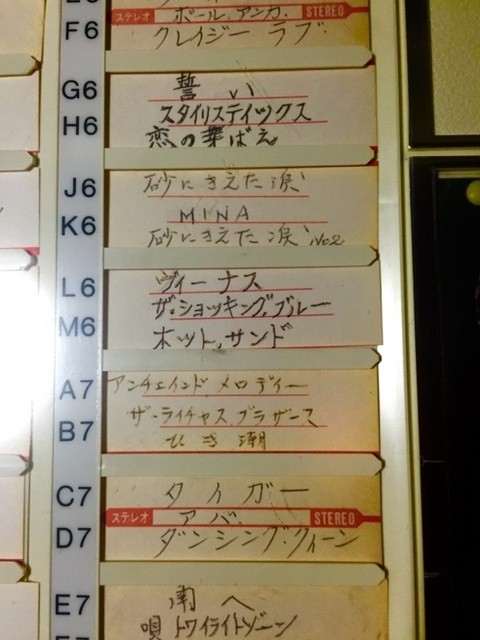 ステレオ ポール.アンカ. STEREO
F6 クレイジー ラブ
G6 誓い
スタイリスティックス
H6 恋の芽ばえ
J6 砂にきえた涙
MINA
K6 砂にきえた涙 No2
L6 ヴィーナス
ザ・ショッキング.ブルー
M6 ホット.サンド
A7 アンチェインド.メロディー
ザ・ライチャス.ブラザース
B7 ひき潮
C7 タイガー
ステレオ アバ. STEREO
D7 ダンシング・クィーン
E7 南へ
唄 トワイライトゾーン